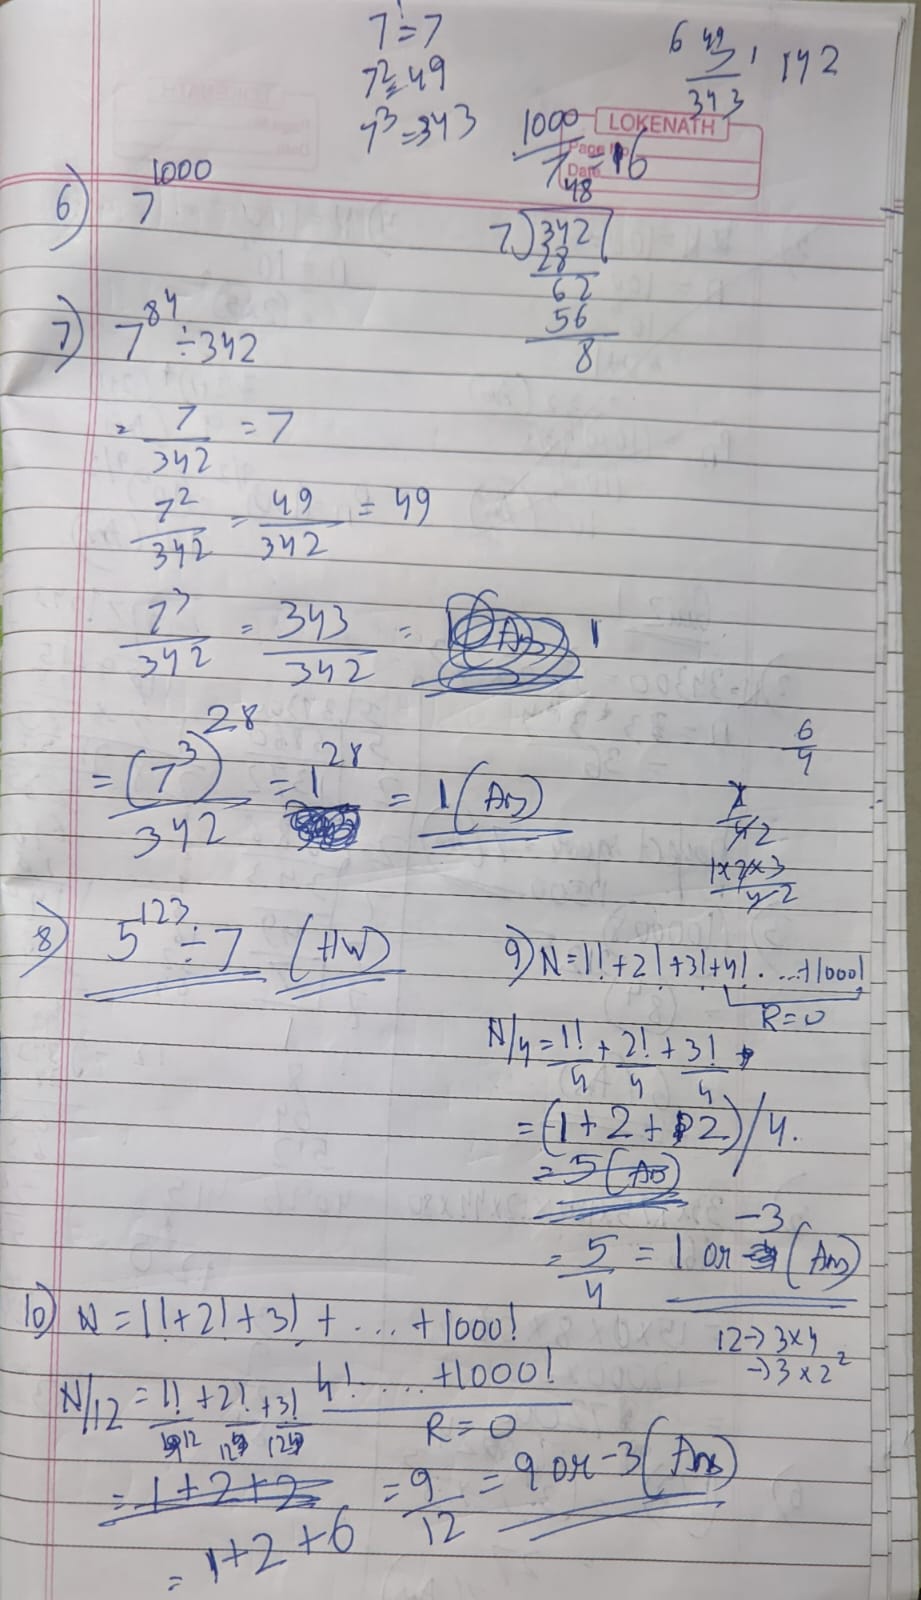 7¹=7
7²=49
7³=343
6 49
7 1 142
343
1000/7 =16
LOKENATH
Page No.
Date
6) 7^1000
48
7)342
28
62
56
8
7) 7^84 ÷342
= 7/342 = 7
7²/342 = 49/342 = 49
7³/342 = 343/342 = 1
= (7³)^28/342 = 1^28 = 1 (Ans)
6/4
1/42
1×2×3/42
8) 5^123 ÷7 (HW)
9) N=1!+2!+3!+4!....+1000!
R=0
N/4=1!/4+2!/4+3!/4+
=(1+2+2)/4.
=5(Ans)
-3
=5/4=1 or (Ans)
10) N=1!+2!+3!+...+1000!
12→3×4
→3×2²
N/12=1!/12+2!/12+3!/12 4!....+1000!
R=0
=1+2+2 =9/12=9 or -3(Ans)
=1+2+6